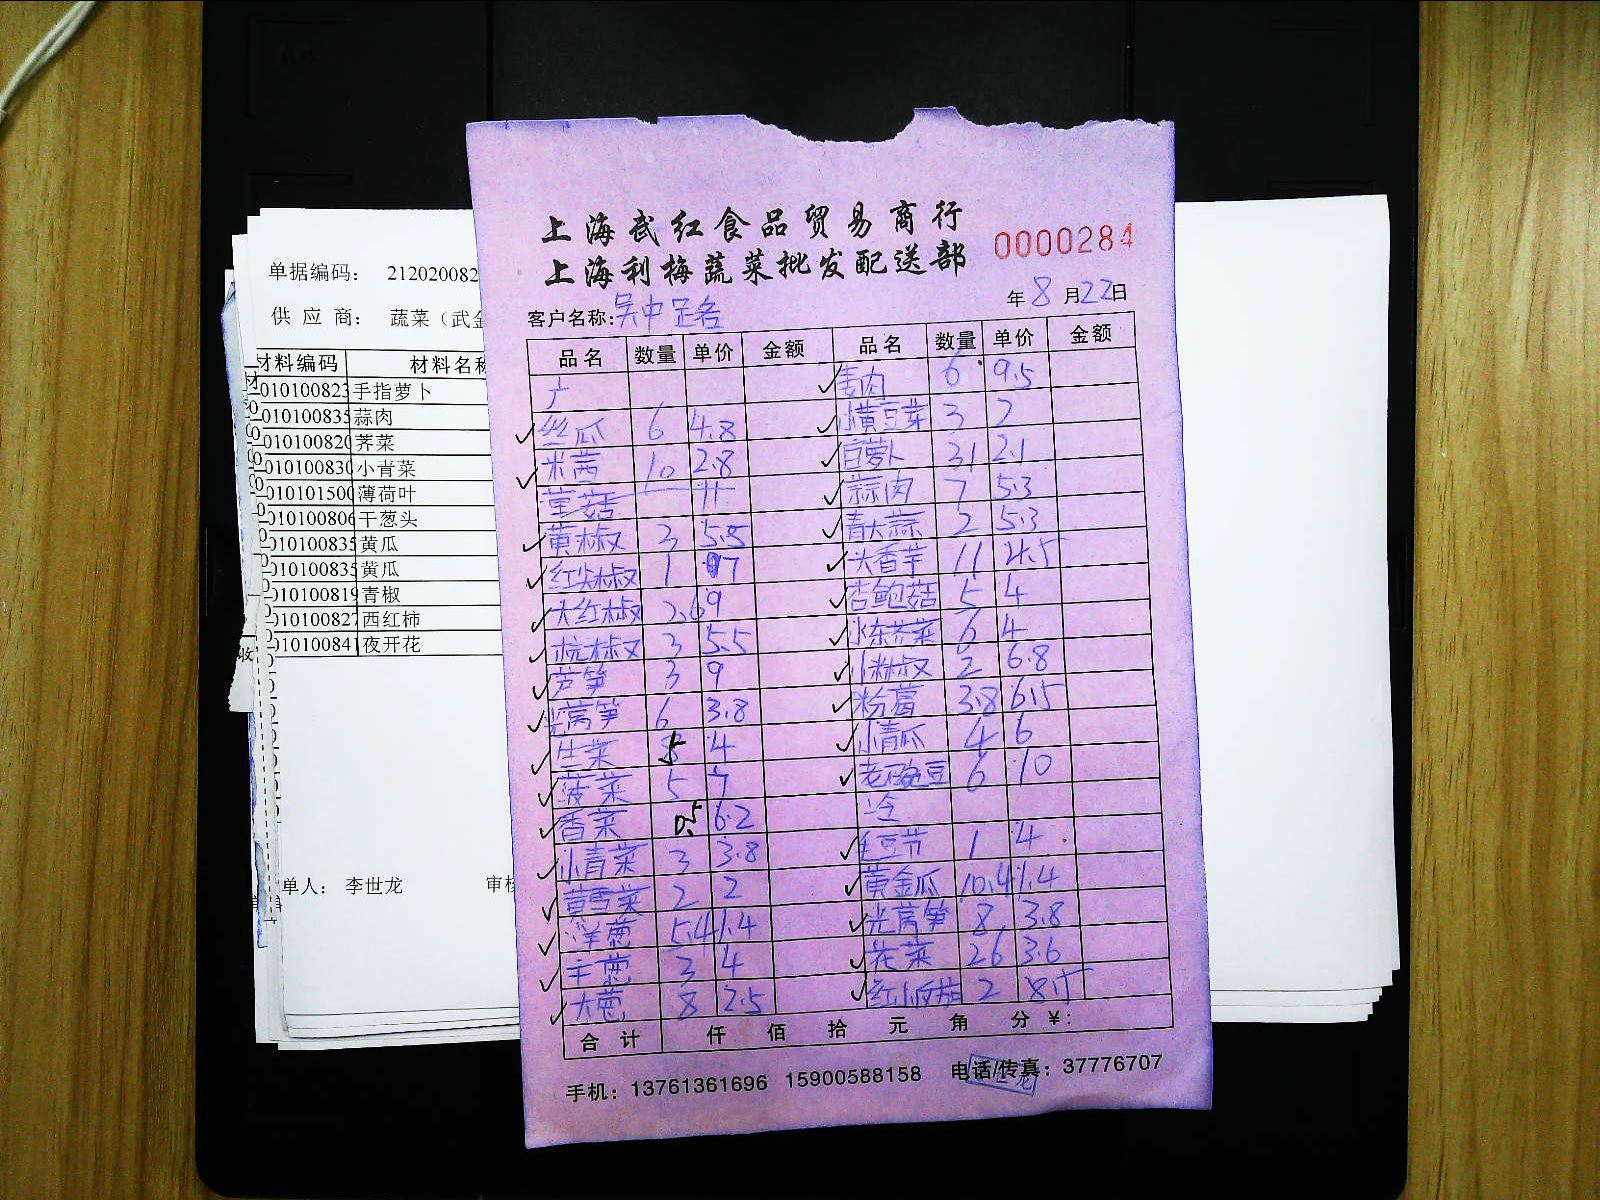 上海武红食品贸易商行
上海利梅蔬菜批发配送部
0000284
客户名称: 吴中 年8月22日
品名 数量 单价 金额 品名 数量 单价 金额
姜肉 6 9.5
丝瓜 6 4.8 小黄豆芽 3 2
米茜 10 2.8 白萝卜 31 2.1
草菇 11 蒜肉 7 5.3
黄椒 3 5.5 青大蒜 2 5.3
红尖椒 1 7 大香芋 11 4.5
大红椒 2.6 9 杏鲍菇 5 4
杭椒 3 5.5 冰冻荠菜 6 4
芦笋 3 9 小米椒 2 6.8
莴笋 6 3.8 粉葛 3.8 6.5
生菜 5 4 小青瓜 4 6
菠菜 5 7 老豌豆 6 10
香菜 0.5 6.2 冷
小青菜 3 3.8 毛豆节 1 4
黄雪菜 2 2 黄金瓜 10.4 1.4
洋葱 5.4 1.4 光莴笋 8 3.8
葱 3 4 花菜 26 3.6
大葱 8 2.5 红小 2 8.5
合计 仟 佰 拾 元 角 分 ¥:
手机: 13761361696 15900588158 电话/传真: 37776707
单据编码: 212020082
供应商: 蔬菜(武金
材料编码 材料名称
010100823 手指萝卜
010100835 蒜肉
010100820 荠菜
010100830 小青菜
010101500 薄荷叶
010100806 干葱头
010100835 黄瓜
010100835 黄瓜
010100819 青椒
010100827 西红柿
010100841 夜开花
单人: 李世龙 审核